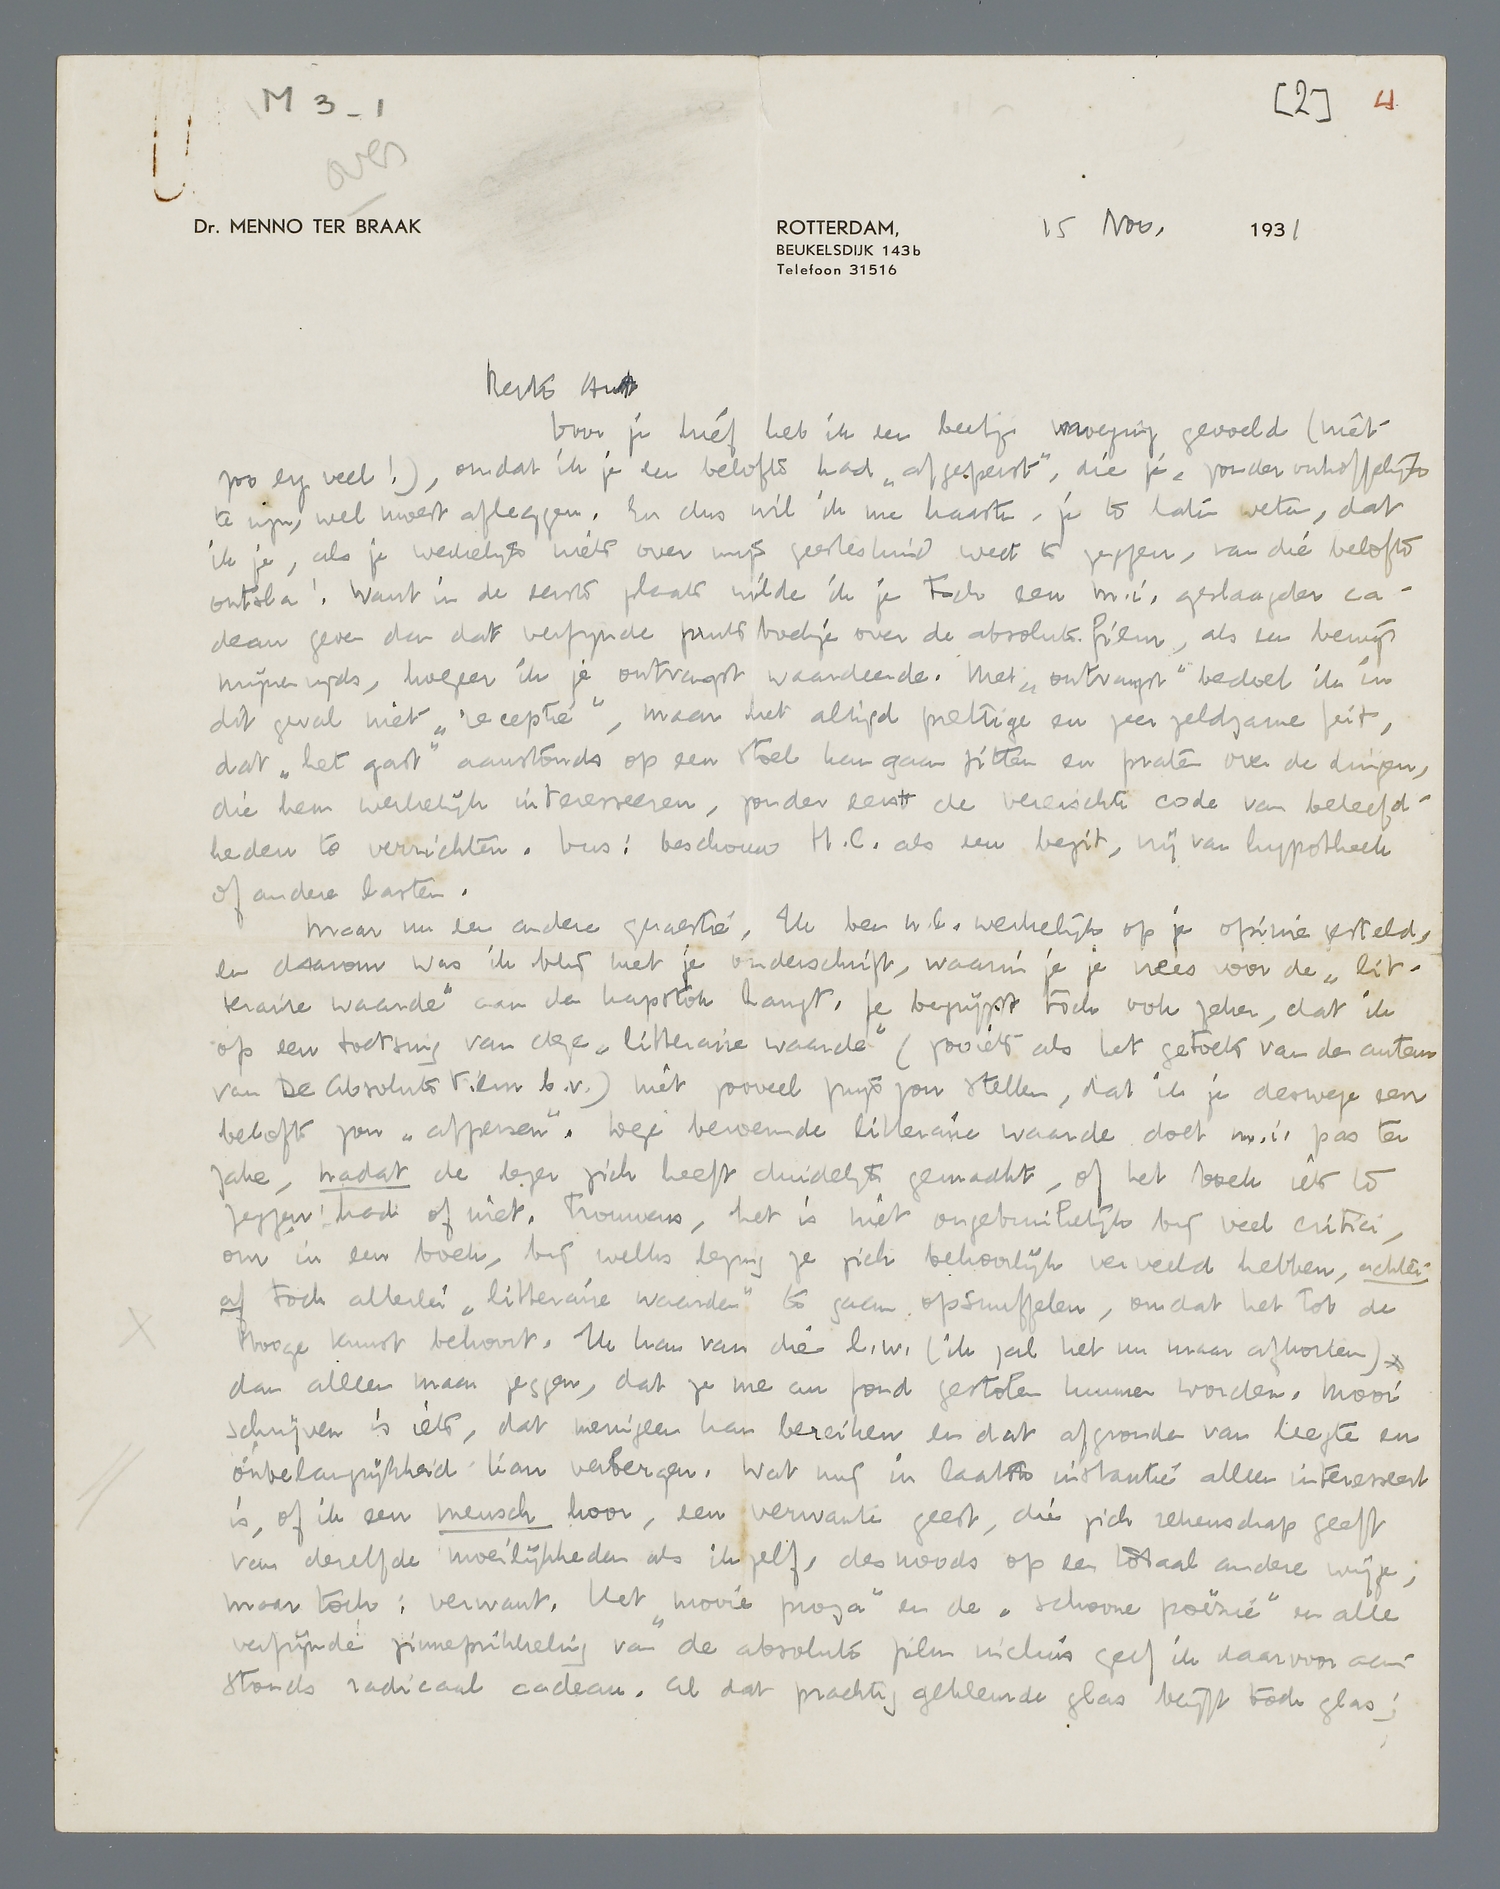 M 3-1
over
[2] 4
Dr. MENNO TER BRAAK
ROTTERDAM, 15 Nov. 1931
BEUKELSDIJK 143b
Telefoon 31516
Beste
Door je brief heb ik een beetje wroeging gevoeld (niet
zoo erg veel!), omdat ik je een belofte had „afgeperst”, die je, zonder onhoffelijk
te zijn, wel moest afleggen. En dus wil ik me haasten, je te laten weten, dat
ik je, als je werkelijk niets over mijn geesteskind weet te zeggen, van die belofte
ontsla! Want in de eerste plaats wilde ik je toch een m.i. geslaagder ca-
deau geven dan dat verfijnde prulboekje over de absolute film, als een bewijs
mijnerzijds, hoezeer ik je ontvangst waardeerde. Met „ontvangst” bedoel ik in
dit geval niet „receptie”, maar het altijd prettige en zeer zeldzame feit,
dat „het gast” aanstonds op een stoel kan gaan zitten en praten over de dingen,
die hem werkelijk interesseeren, zonder eerst de vereischte code van beleefd-
heden te verrichten. Dus: beschouw H.C. als een bezit, vrij van hypotheek
of andere lasten.
Maar nu een andere quaestie. Ik ben n.l. werkelijk op je opinie gesteld,
en daarom was ik blij met je onderschrift, waarin je je vrees voor de „lit-
teraire waarde” aan den kapstok hangt. Je begrijpt toch ook zeker, dat ik
op een toetsing van deze „litteraire waarde” (zooiets als het getoets van den auteur
van De Absolute Film b.v.) niet zooveel prijs zou stellen, dat ik je deswege een
belofte zou „afpersen”. Deze beroemde litteraire waarde doet m.i. pas ter
zake, nadat de lezer zich heeft duidelijk gemaakt, of het boek iets te
zeggen had of niet. Trouwens, het is niet ongebruikelijk bij veel critici,
om in een boek, bij welks lezing ze zich behoorlijk verveeld hebben, achter-
af toch allerlei „litteraire waarden” te gaan opsnuffelen, omdat het tot de
Hooge Kunst behoort. Ik kan van die l.w. (ik zal het nu maar afkorten) x
dan alleen maar zeggen, dat ze me au fond gestolen kunnen worden. Mooi
schrijven is iets, dat menigeen kan bereiken en dat afgronden van leegte en
onbelangrijkheid kan verbergen. Wat mij in laatste instantie alleen interesseert
is, of ik een mensch hoor, een verwante geest, die zich rekenschap geeft
van dezelfde moeilijkheden als ik zelf, desnoods op een totaal andere wijze,
maar toch: verwant. Het „mooie proza” en de „schoone poëzie” en alle
verfijnde zinneprikkeling van de absolute film incluis geef ik daarvoor aan-
stonds radicaal cadeau. Al dat prachtig gekleurde glas blijft toch glas;